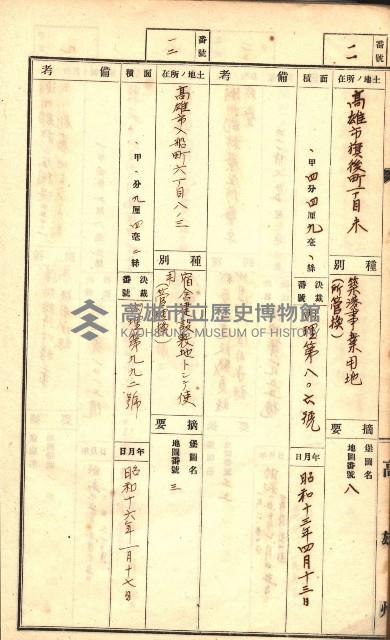 番號
一一
土地ノ所在
高雄市壽後町一丁目未
種別
築港事業用地
(所管換)
摘要
堡圖名
地圖番號
八
面積
、甲四分四厘九毫、絲
決裁番號
理第八〇六號
年月日
昭和十三年四月十三日
備考
番號
一二
土地ノ所在
高雄市入船町六丁目八ノ三
種別
宿舍建設敷地トシテ使
用(所管換)
摘要
堡圖名
地圖番號
三
面積
、甲、分九厘四毫二絲
決裁番號
理第九九二號
年月日
昭和十六年一月十七日
備考
高雄州
高雄市立歷史博物館
KAOHSIUNG MUSEUM OF HISTORY